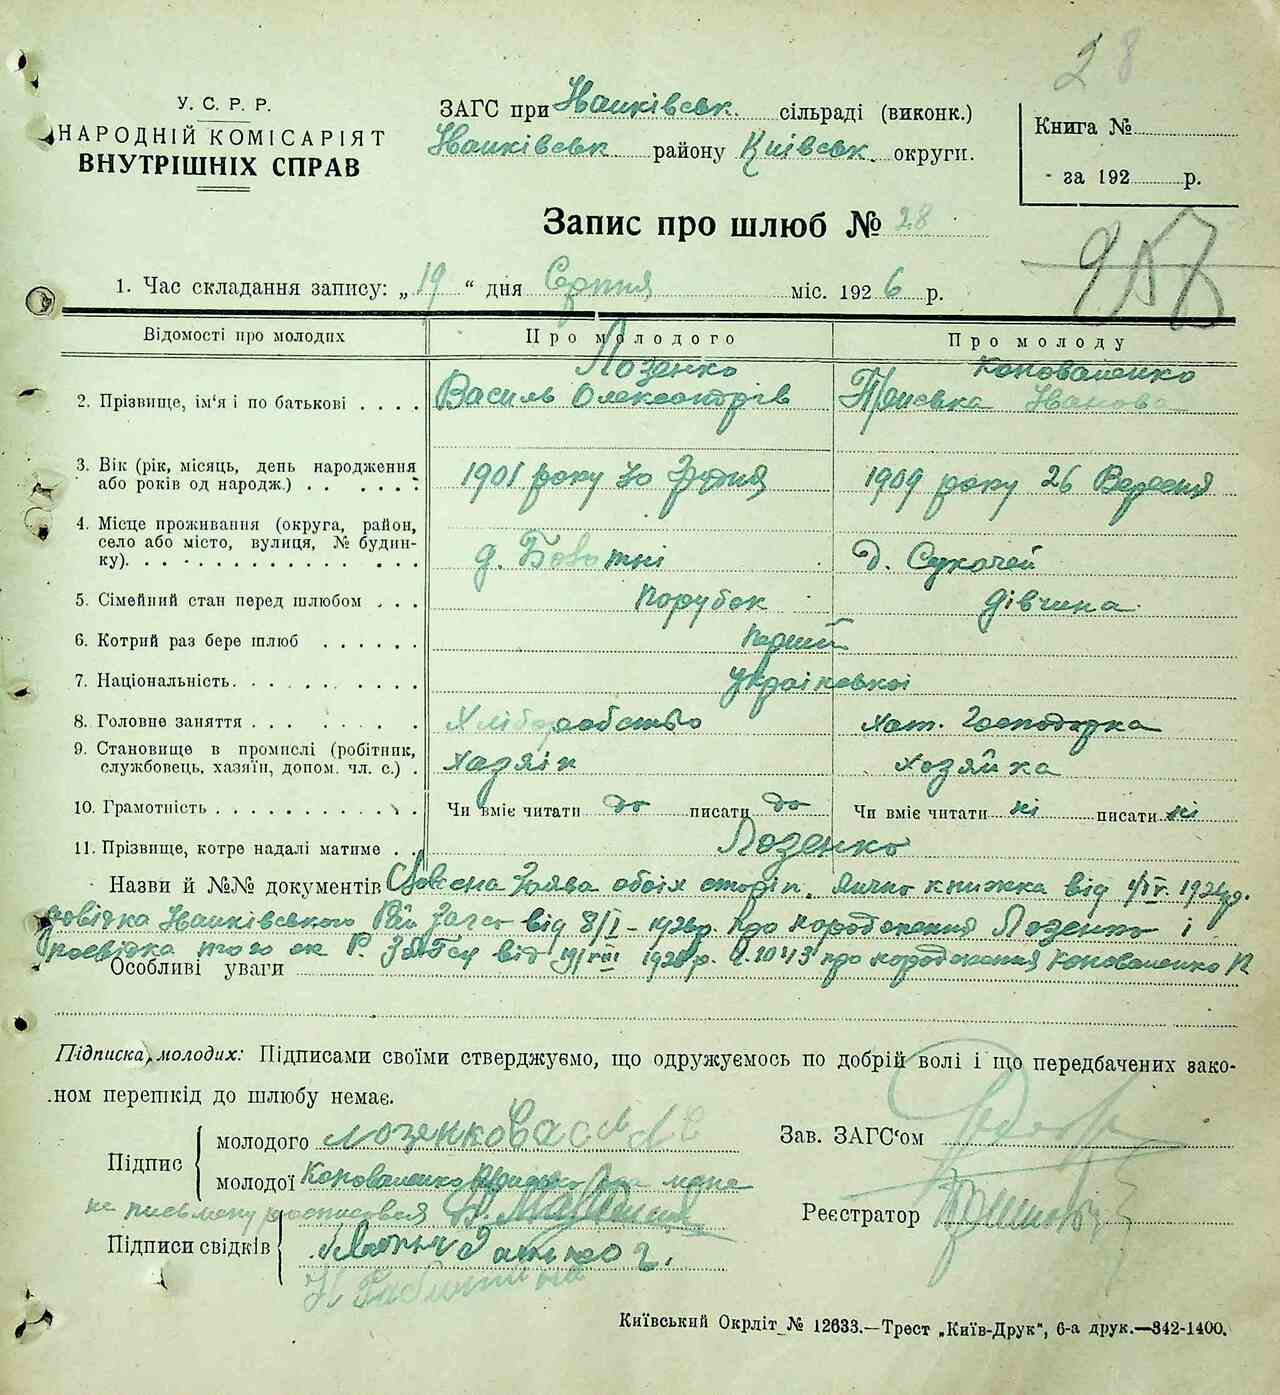 28
У. С. Р. Р.
НАРОДНІЙ КОМІСАРІЯТ
ВНУТРІШНІХ СПРАВ
ЗАГС при Іванківськ. сільраді (виконк.)
Іванківськ району Київськ. округи.
Книга №
за 192 р.
Запис про шлюб № 28
957
1. Час складання запису: „19“ дня Серпня міс. 1926 р.
Відомості про молодих Про молодого Про молоду
Лозенко Коноваленко
2. Прізвище, ім'я і по батькові Василь Олександрів Іванова
3. Вік (рік, місяць, день народження
або років од народж.) 1901 року 30 Грудня 1909 року 26 Вересня
4. Місце проживання (округа, район,
село або місто, вулиця, № будин-
ку). д. д. Сукачей
5. Сімейний стан перед шлюбом Парубок дівчина
6. Котрий раз бере шлюб перший
7. Національність української
8. Головне заняття Хліборобство хат. Господарка
9. Становище в промислі (робітник,
службовець, хазяїн, допом. чл. с.) хазяїн хозяйка
10. Грамотність Чи вміє читати да писати да Чи вміє читати ні писати ні
11. Прізвище, котре надалі матиме Лозенко
Назви й №№ документів заява обоїх сторін. книжка від
довідка Іванківського Рай Загса від 8/I–1926р. про народження Лозенко і
від 1926 р. про народження Коноваленко
Особливі уваги
Підписка молодих: Підписами своїми стверджуємо, що одружуємось по добрій волі і що передбачених зако-
ном перешкід до шлюбу немає.
Підпис
молодого лозенковасиль
молодої Коноваленко
не письмену росписовся
Підписи свідків
Зав. ЗАГС'ом
Реєстратор
Київський Окрліт № 12633.—Трест „Київ-Друк“, 6-а друк.—342-1400.